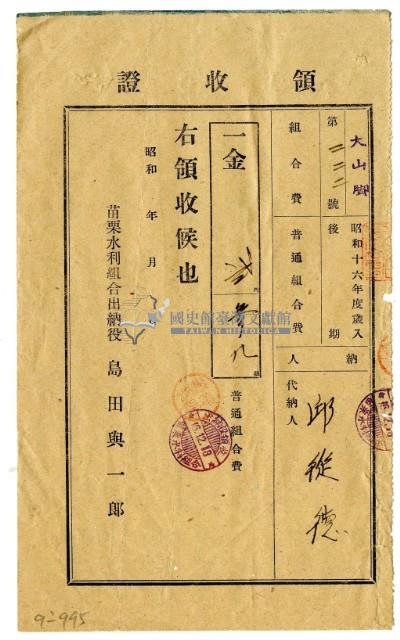 領收證
大山腳
第二三二號
昭和十六年度歲入
後期
組合費
普通組合費
納人
代納人
邱從德
一金
普通組合費
右領收候也
昭和 年 月
苗栗水利組合出納役 島田與一郎
16.12.18
國史館臺灣文獻館
TAIWAN HISTORICA
9-995